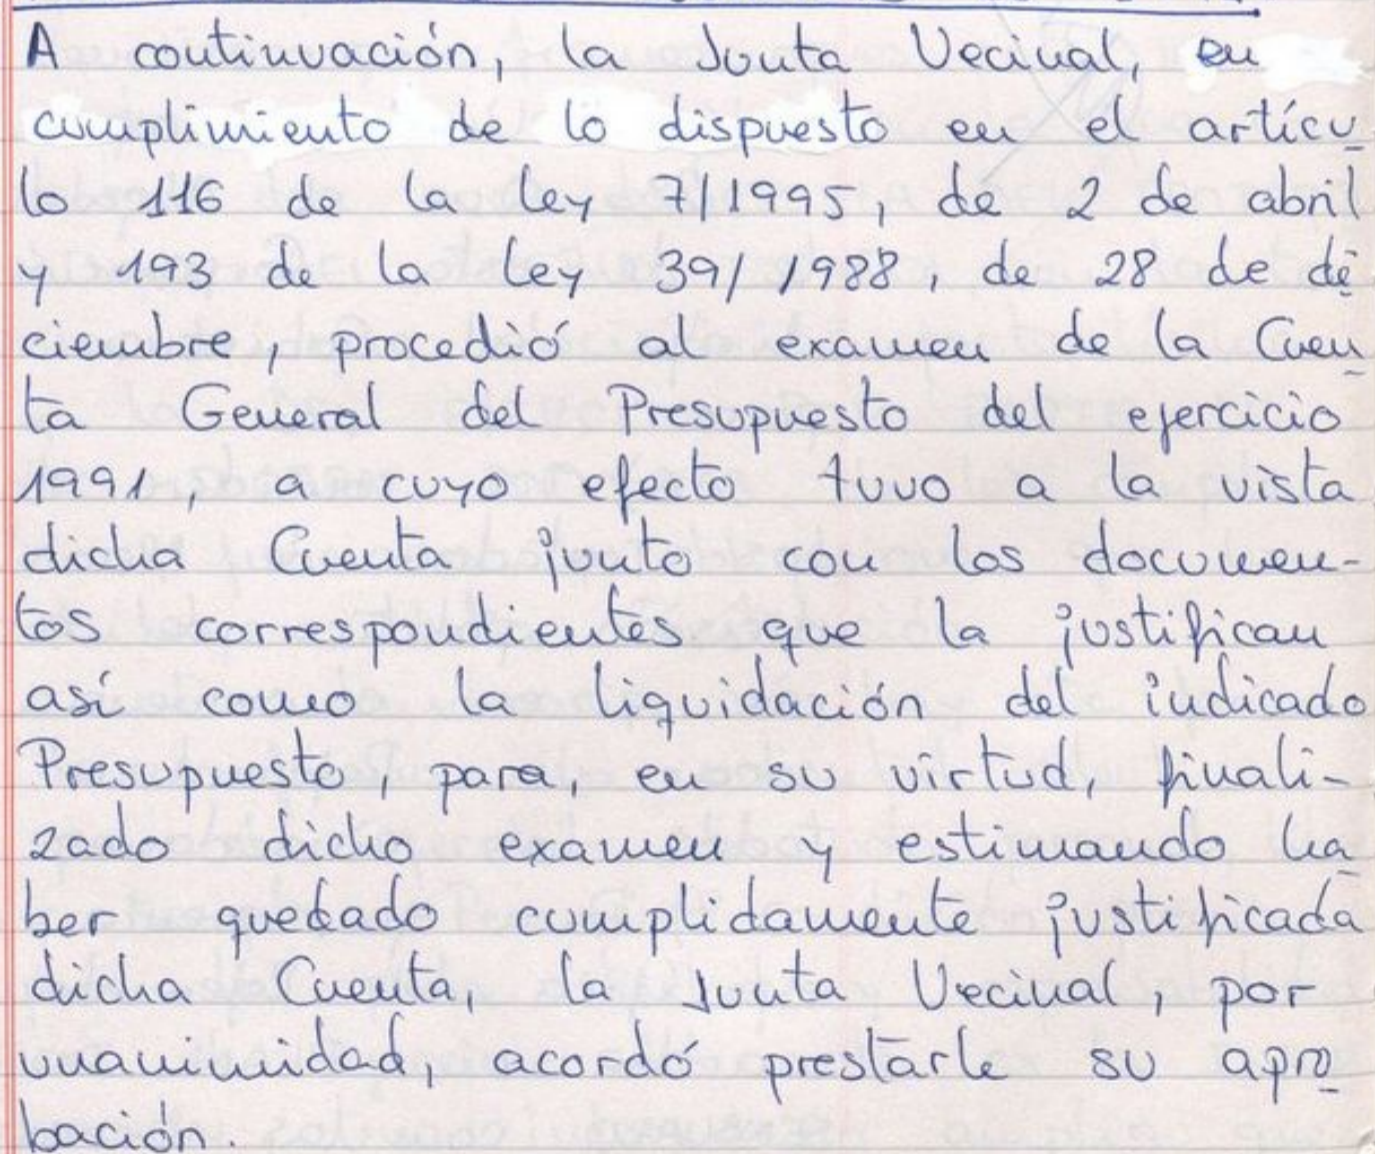 A continuación, la Junta Vecinal, en
cumplimiento de lo dispuesto en el artícu
lo 116 de la ley 7/1995, de 2 de abril
y 193 de la ley 39/1988, de 28 de di
ciembre, procedió al examen de la Cuen
ta General del Presupuesto del ejercicio
1991, a cuyo efecto tuvo a la vista
dicha Cuenta junto con los documen-
tos correspondientes que la justifican
así como la liquidación del indicado
Presupuesto, para, en su virtud, finali-
zado dicho examen y estimando ha
ber quedado cumplidamente justificada
dicha Cuenta, la Junta Vecinal, por
unanimidad, acordó prestarle su apro
bación.